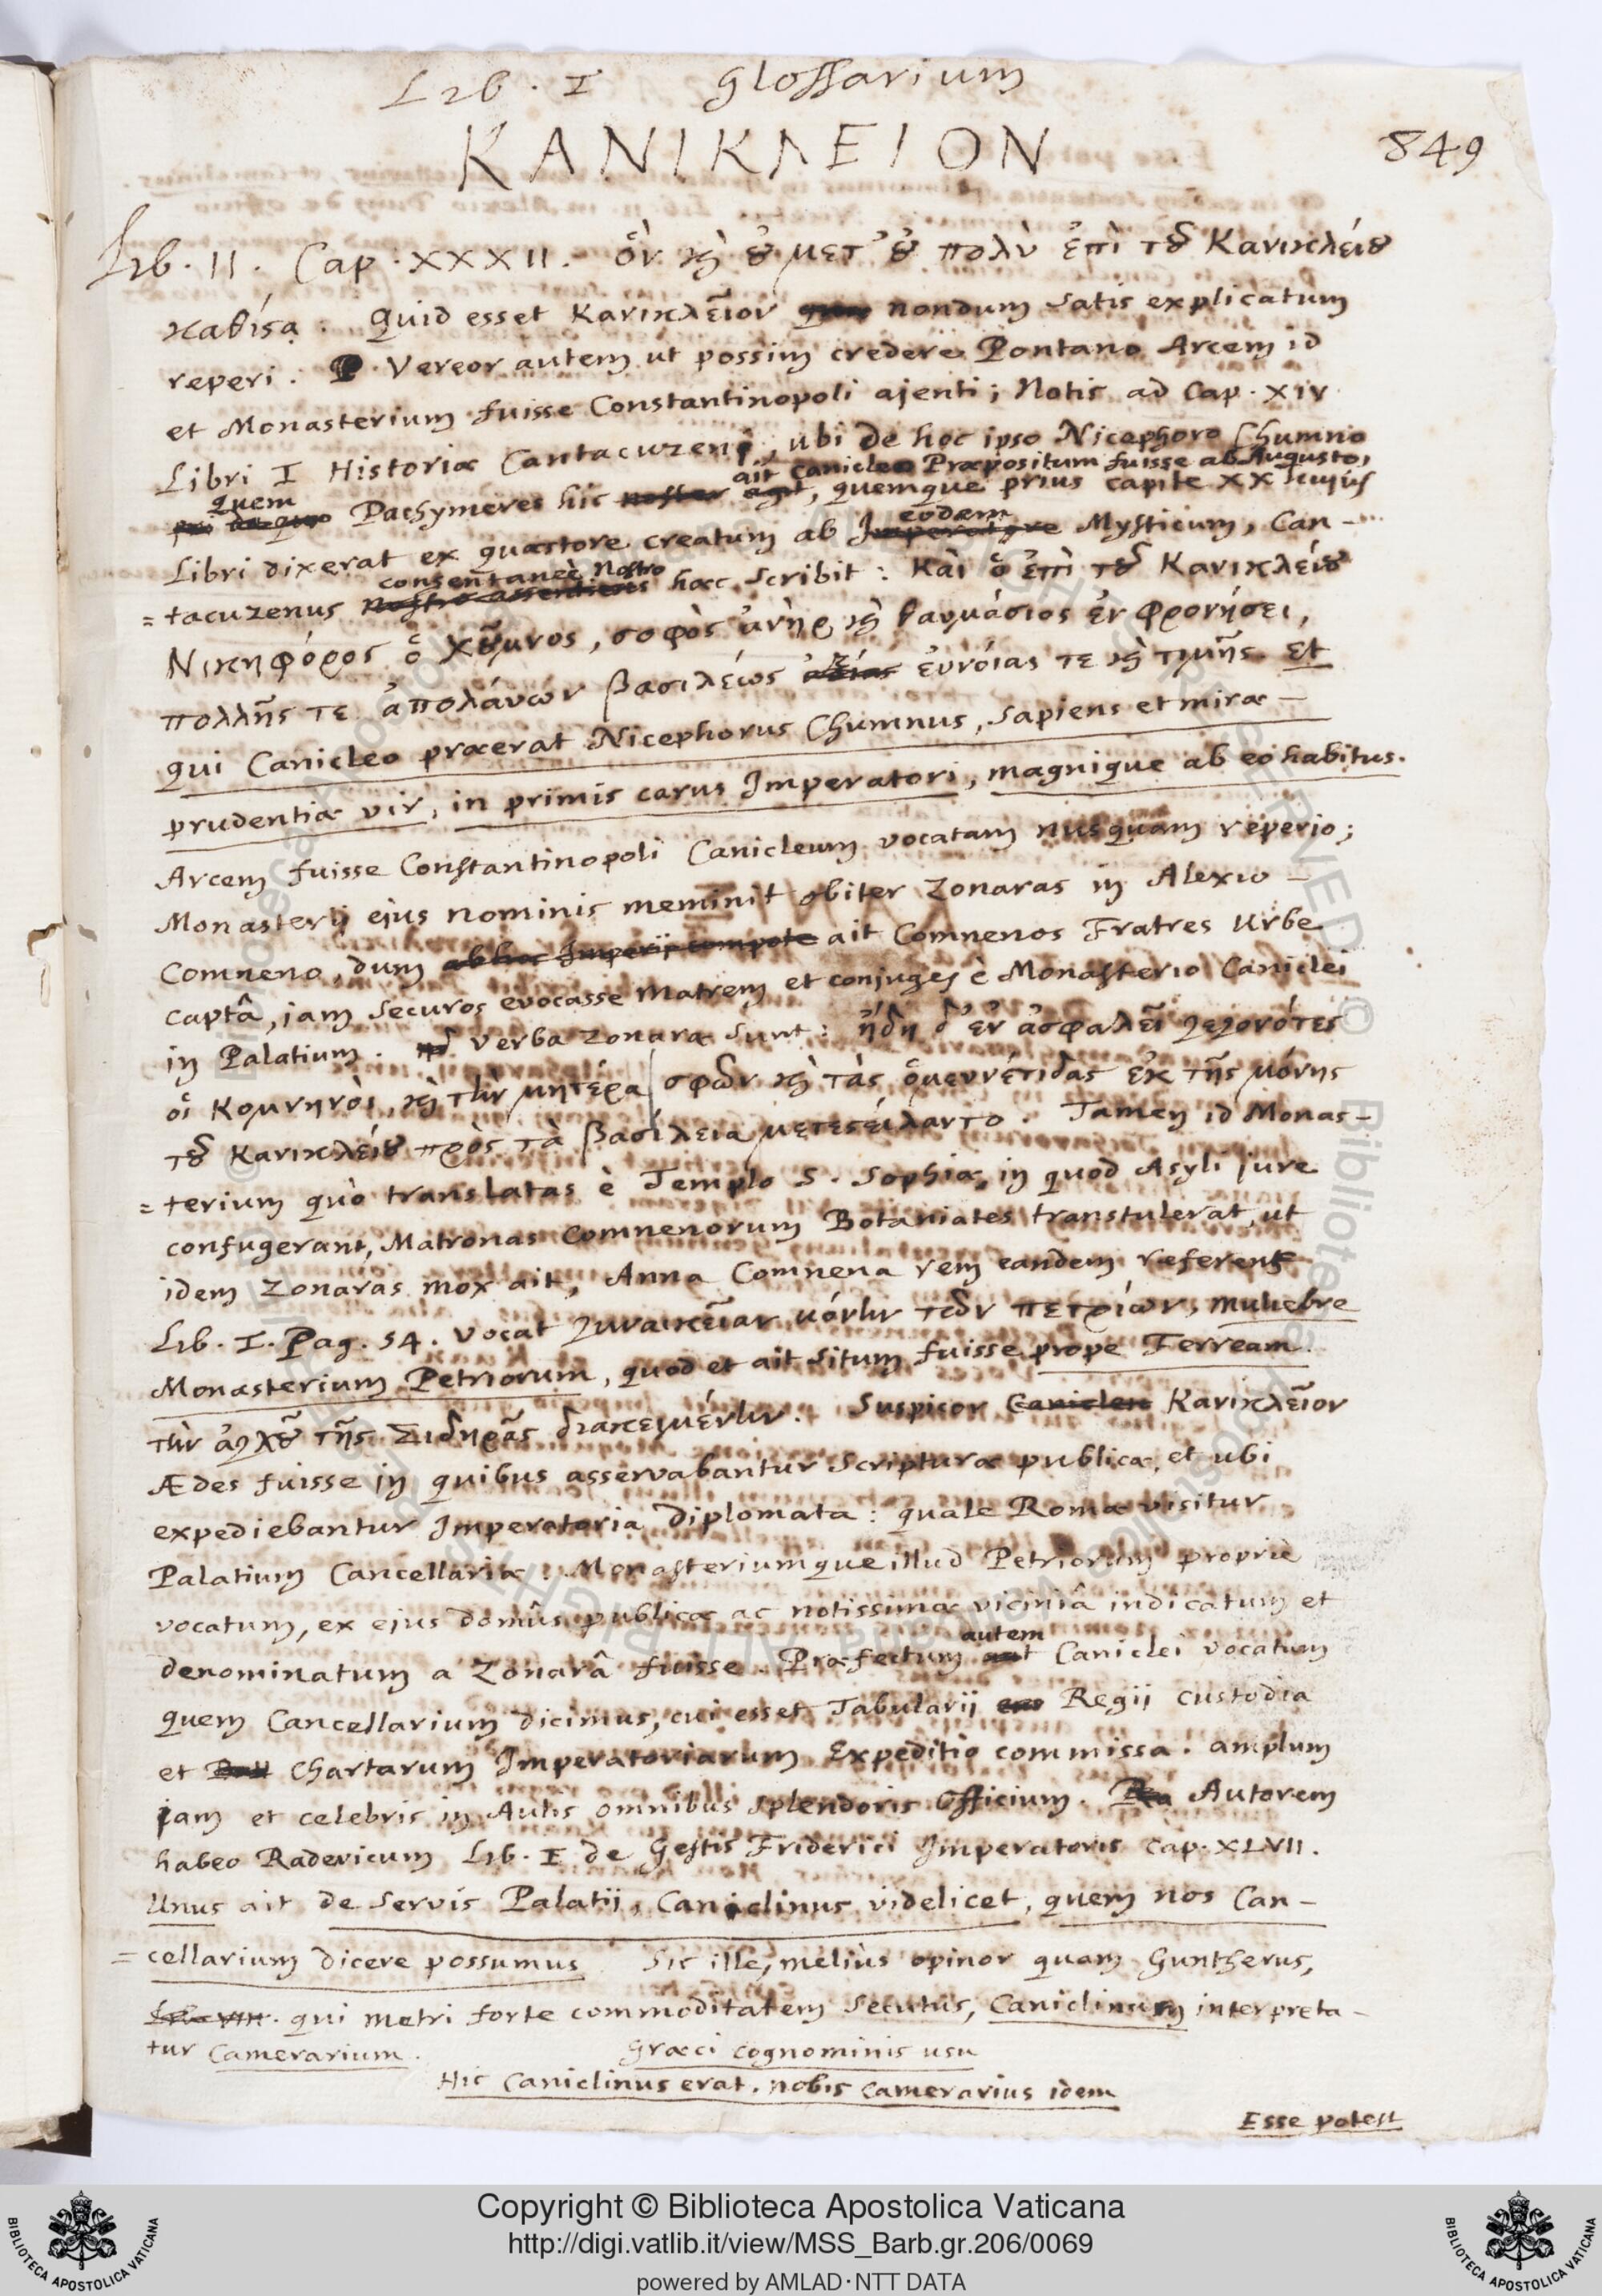 Lib. I glossarium
ΚΑΝΙΚΛΕΙΟΝ
849
Lib. II. Cap. XXXII. ὃν κὶ ȣ̓ μετ' ȣ̓ πολὺ ἐπὶ τȣ͂ Κανικλείȣ
καθίσᾳ. Quid esset Κανικλεῖον nondum satis explicatum
reperi. Vereor autem ut possim credere Pontano Arcem id
et Monasterium fuisse Constantinopoli ajenti; Notis ad Cap. XIV
Libri I Historiæ Cantacuzeni, ubi de hoc ipso Nicephoro Chumno
ait Canicleo Præpositum fuisse ab Augusto,
quem Pachymeres hic noster agit, quemque prius capite XX hujus
eodem
Libri dixerat ex quæstore creatum ab Imperatore Mysticum, Can-
consentaneè Nostro
=tacuzenus nostro assentiens hæc scribit: Καὶ ὁ ἐπὶ τȣ͂ Κανικλείȣ
Νικηφόρος ὁ χȣ͂μνος, σοφὸς ἀνὴρ κὶ θαυμάσιος ἐν φρονήσει,
πολλῆς τε ἀπολάυων βασιλέως ἀξίας ἐυνόιας τε κὶ τιμῆς. et
qui Canicleo præerat Nicephorus Chumnus, sapiens et miræ
prudentiæ vir, in primis carus Imperatori, magnique ab eo habitus.
Arcem fuisse Constantinopoli Canicleum vocatam nusquam reperio;
Monasterij ejus nominis meminit obiter Zonaras in Alexio
Comneno, dum ab hoc Imperij compote ait Comnenos Fratres Urbe
captâ, jam securos evocasse Matrem et conjuges è Monasterio Caniclei
in Palatium. Verba Zonaræ sunt: ἤδη δ' ἐν ἀσφαλεῖ γεγονότες
οἱ Κομνηνὸι, κὶ τὴν μητέρα σφῶν κὶ τὰς ὁμευνέτιδας ἐκ τῆς μόνης
τȣ͂ Κανικλείȣ πρὸς τὰ βασίλεια μετεστείλαντο. Tamen id Monas-
=terium quò translatas è Templo S. Sophiæ, in quod Asyli jure
confugerant, Matronas Comnenorum Botaniates transtulerat, ut
idem Zonaras mox ait, Anna Comnena rem eandem referens
Lib. I. Pag. 54. vocat γυναικεῖαν μόνην τῶν πετρίων, muliebre
Monasterium Petriorum, quod et ait situm fuisse prope Ferream.
τὴν ἀγχȣ͂ τῆς Σιδηρᾶς διακειμένην. Suspicor Canicleu Κανικλεῖον
Ædes fuisse in quibus asservabantur scripturæ publicæ, et ubi
expediebantur Imperatoria Diplomata: quale Romæ visitur
Palatium Cancellariæ. Monasteriumque illud Petriorum propriè
vocatum, ex ejus domûs publicæ ac notissimæ viciniâ indicatum et
autem
denominatum a Zonarâ fuisse. Præfectum aut Caniclei vocatum
quem Cancellarium dicimus, cui esset Tabularij Regij custodia
et chartarum Imperatoriarum Expeditio commissa. amplum
jam et celebris in Aulis omnibus splendoris Officium. Autorem
habeo Radevicum Lib. I de Gestis Friderici Imperatoris Cap. XLVII.
Unus ait de servis Palatij, Caniclinus videlicet, quem nos Can-
=cellarium dicere possumus. Sic ille, meliùs opinor quam Guntherus,
Lib. VIII. qui metri forte commoditatem secutus, Caniclinum interpreta-
tur Camerarium. Græci cognominis usu
Hic Caniclinus erat. nobis camerarius idem
Esse potest
Copyright © Biblioteca Apostolica Vaticana
http://digi.vatlib.it/view/MSS_Barb.gr.206/0069
powered by AMLAD·NTT DATA
BIBLIOTECA APOSTOLICA VATICANA
BIBLIOTECA APOSTOLICA VATICANA